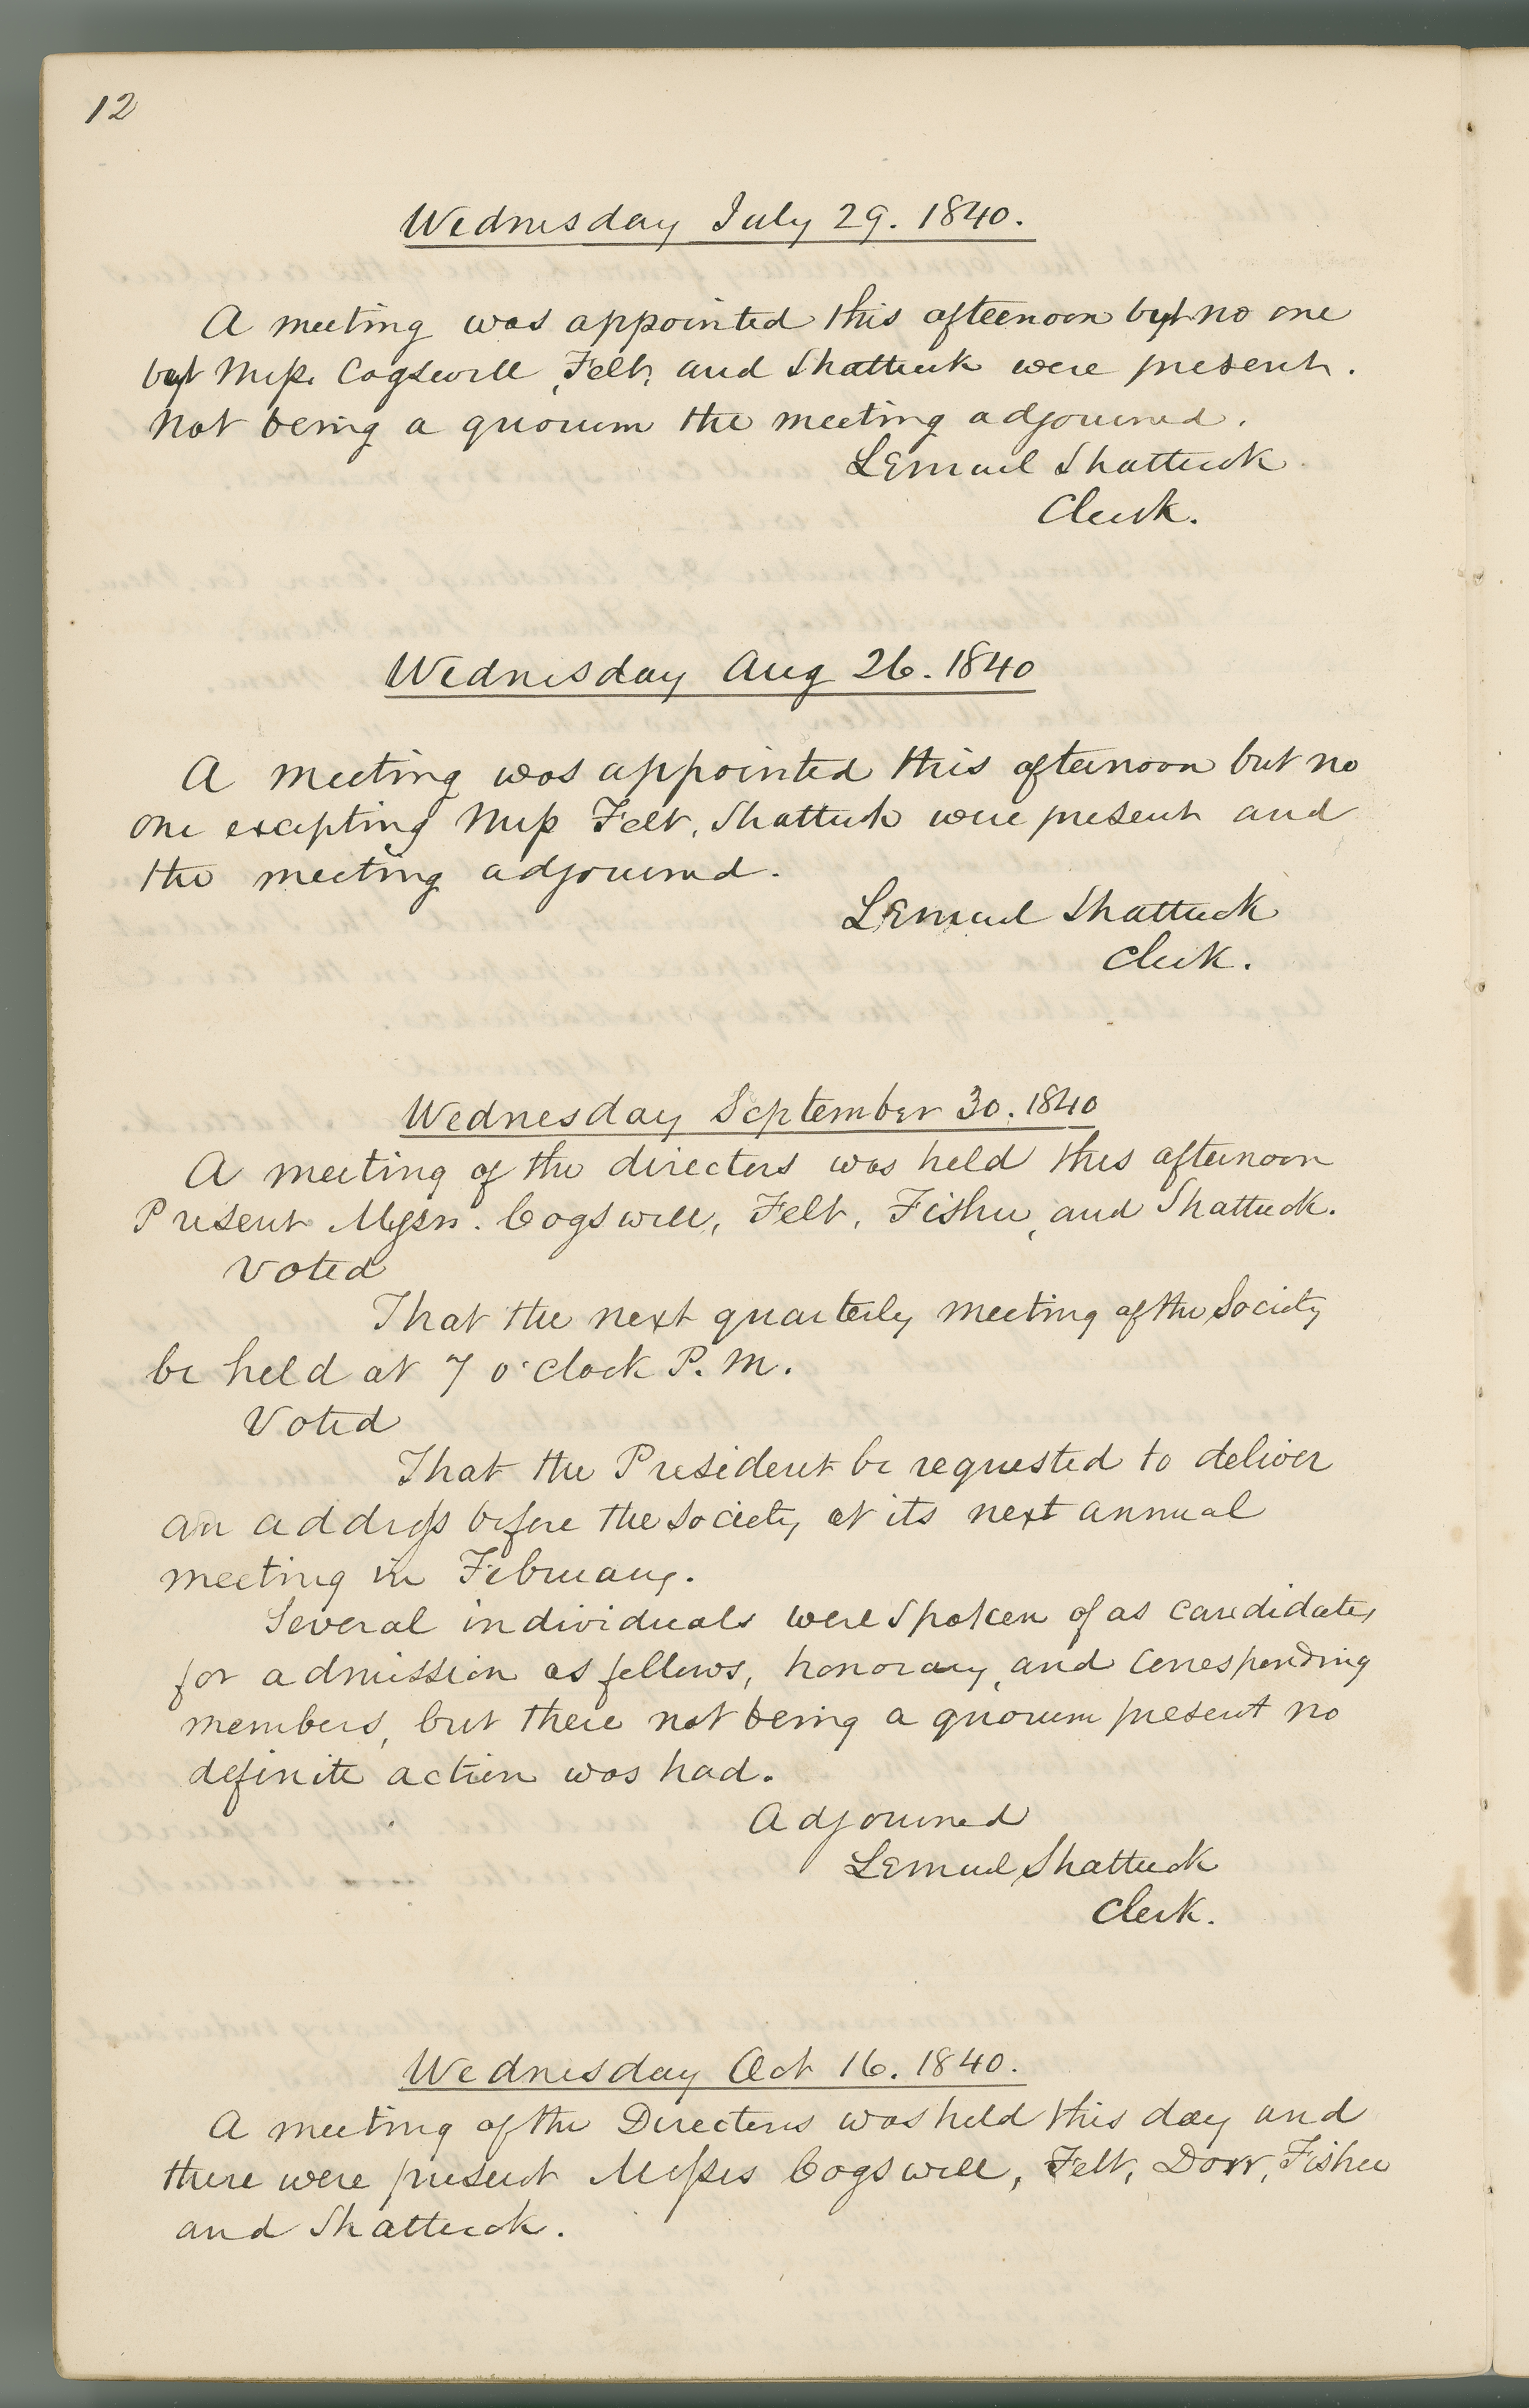 12
Wednesday July 29. 1840.
A meeting was appointed this afternoon but no one
but Mess. Cogswell, Felt, and Shattuck were present.
Not being a quorum the meeting adjourned.
Lemuel Shattuck
Clerk.
Wednesday Aug 26. 1840
A meeting was appointed this afternoon but no
one excepting Mess Felt, Shattuck were present and
the meeting adjourned.
Lemuel Shattuck
Clerk.
Wednesday September 30. 1840
A meeting of the directors was held this afternoon
Present Messrs. Cogswell, Felt, Fisher, and Shattuck.
Voted
That the next quarterly meeting of the Society
be held at 7 o'clock P. M.
Voted
That the President be requested to deliver
an address before the Society at its next annual
meeting in February.
Several individuals were spoken of as candidates
for admission as fellows, honorary, and corresponding
members, but there not being a quorum present no
definite action was had.
Adjourned
Lemuel Shattuck
Clerk.
Wednesday Oct 16. 1840.
A meeting of the Directors was held this day and
there were present Messrs Cogswell, Felt, Dorr, Fisher
and Shattuck.